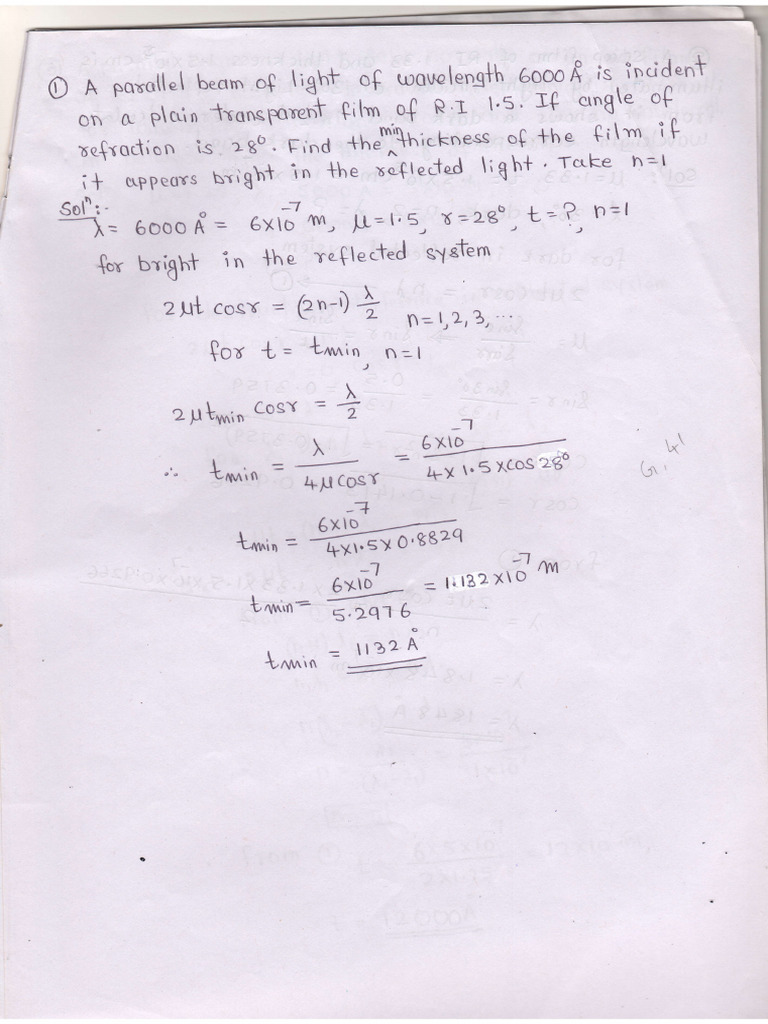 ① A parallel beam of light of wavelength 6000 Å is incident
on a plain transparent film of R.I 1.5. If angle of
refraction is 28°. Find the min thickness of the film if
it appears bright in the reflected light. Take n=1
Solⁿ:-
λ = 6000 Å = 6×10⁻⁷ m, μ=1.5, r=28°, t=?, n=1
for bright in the reflected system
2μt cosr = (2n-1) λ/2   n=1,2,3,...
for t = tmin, n=1
2μtmin cosr = λ/2
∴ tmin = λ/4μcosr = 6×10⁻⁷/4×1.5×cos28°
tmin = 6×10⁻⁷/4×1.5×0.8829
tmin = 6×10⁻⁷/5.2976 = 1.132×10⁻⁷ m
tmin = 1132 Å